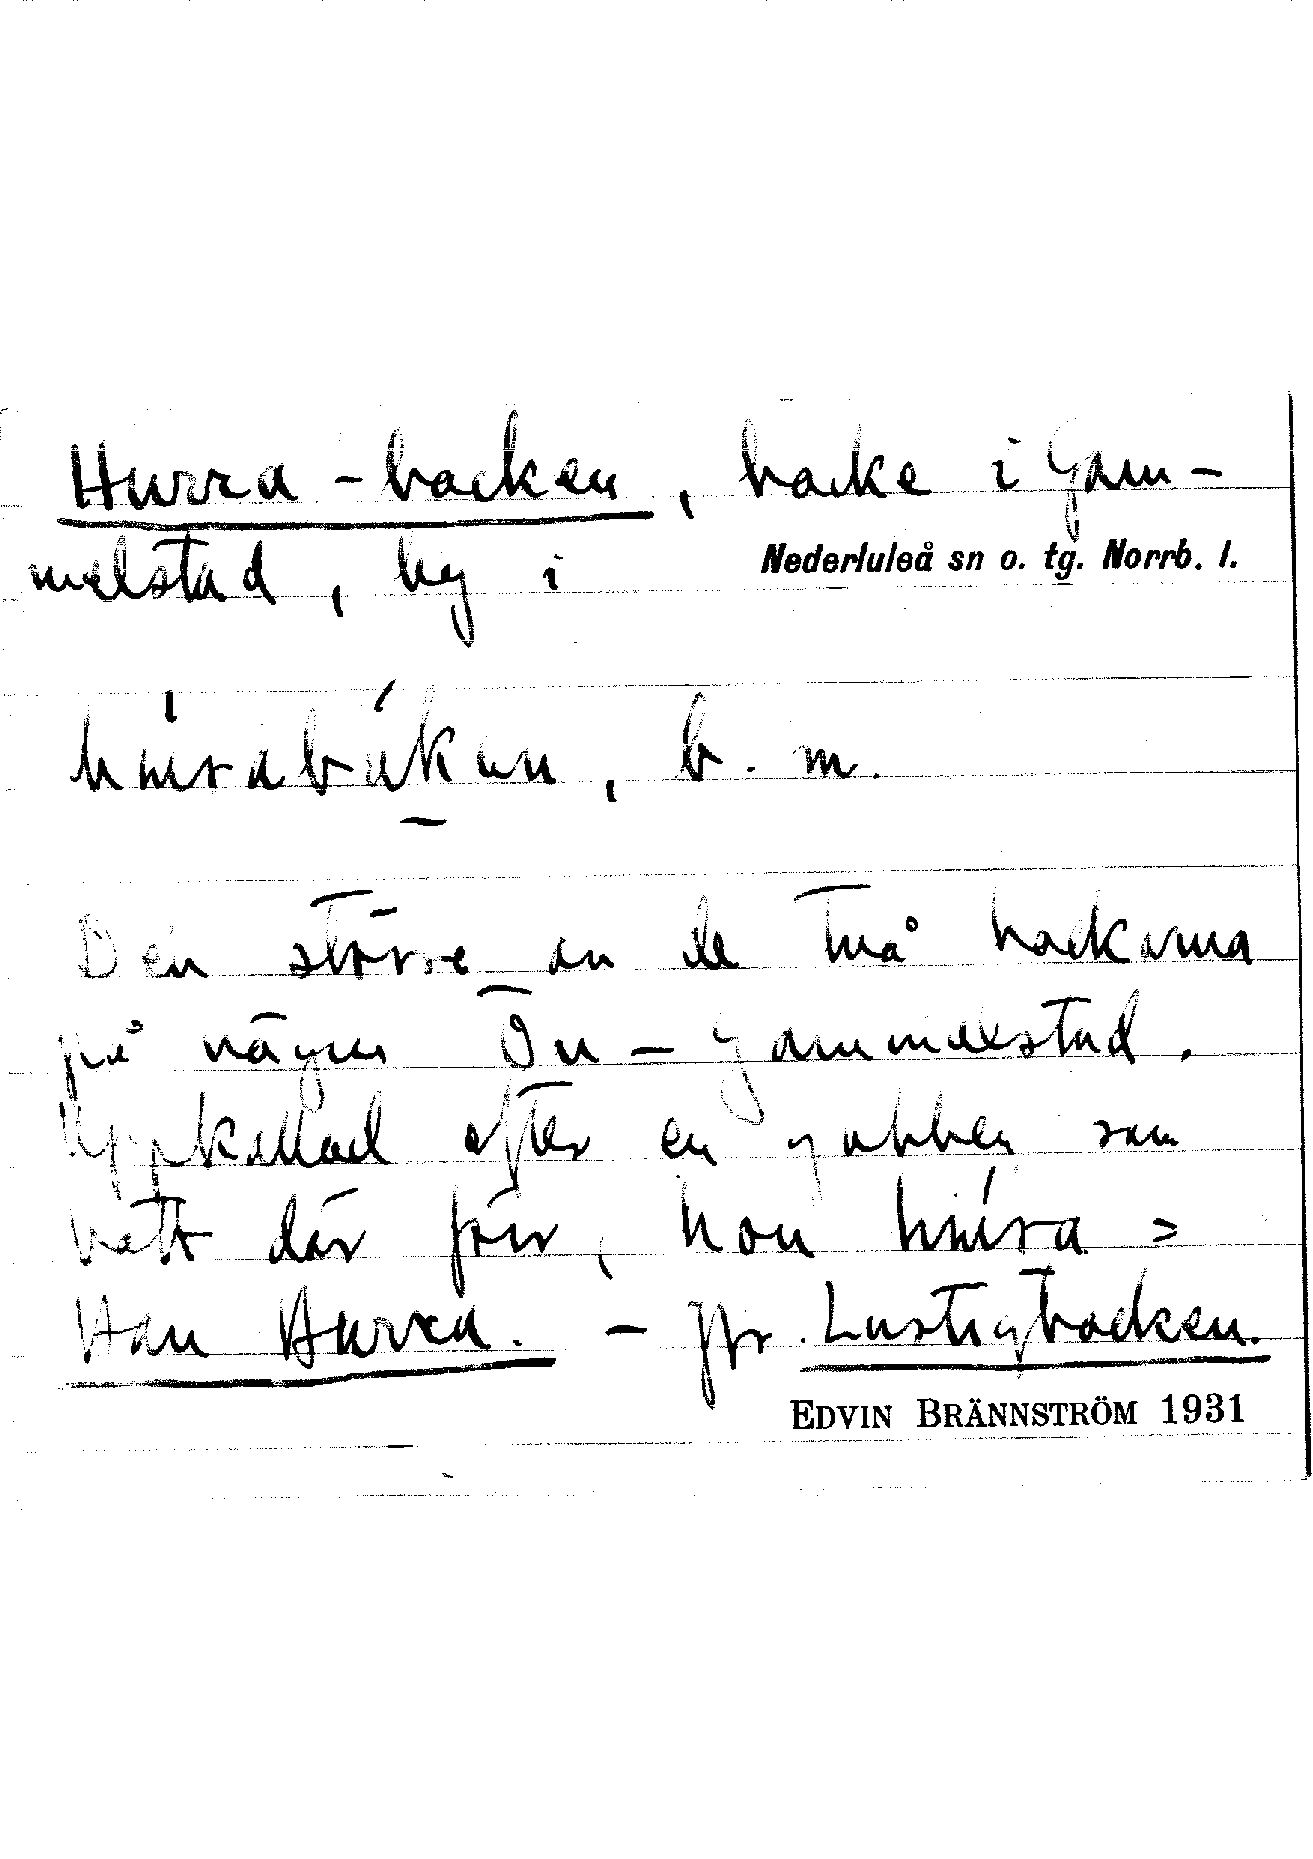 Hurra-backen, backe i Gam-
melstad, by i Nederluleå sn o. tg. Norrb. l.
b. m.
Den större av de två backarna
på vägen Ön-gammelstad.
Uppkallad efter en gubbe som
bott där förr, hon húra =
Han Hurra. - Jfr. Lustigbacken.
EDVIN BRÄNNSTRÖM 1931